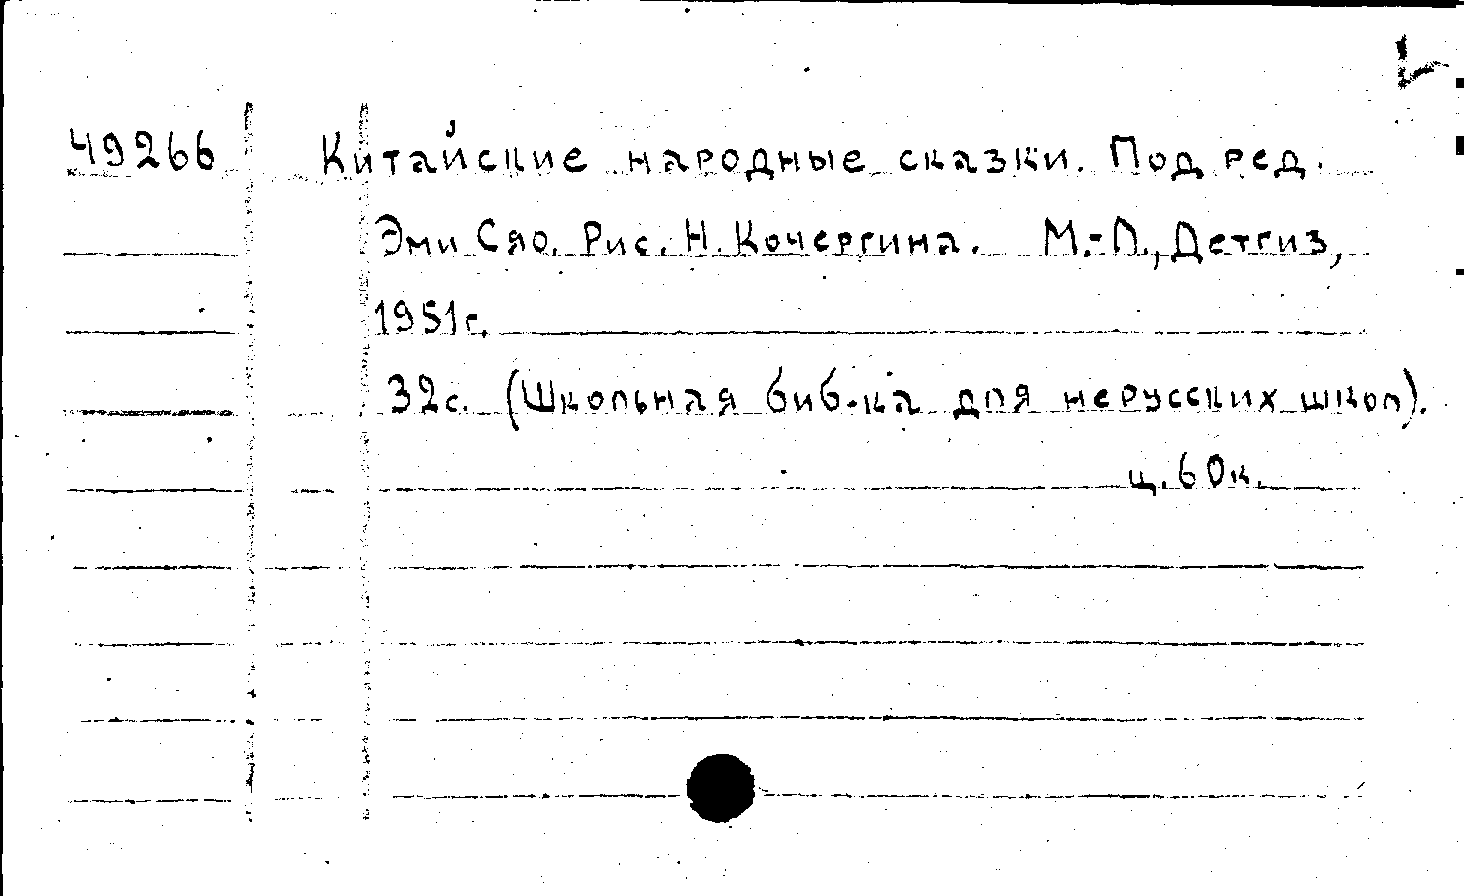 49266 Китайские народные сказки. Под ред.
Эми Сяо. Рис. Н. Кочергина. М.-Л., Детгиз,
1951г.
32с. (Школьная биб-ка для нерусских школ).
ц. 60к.